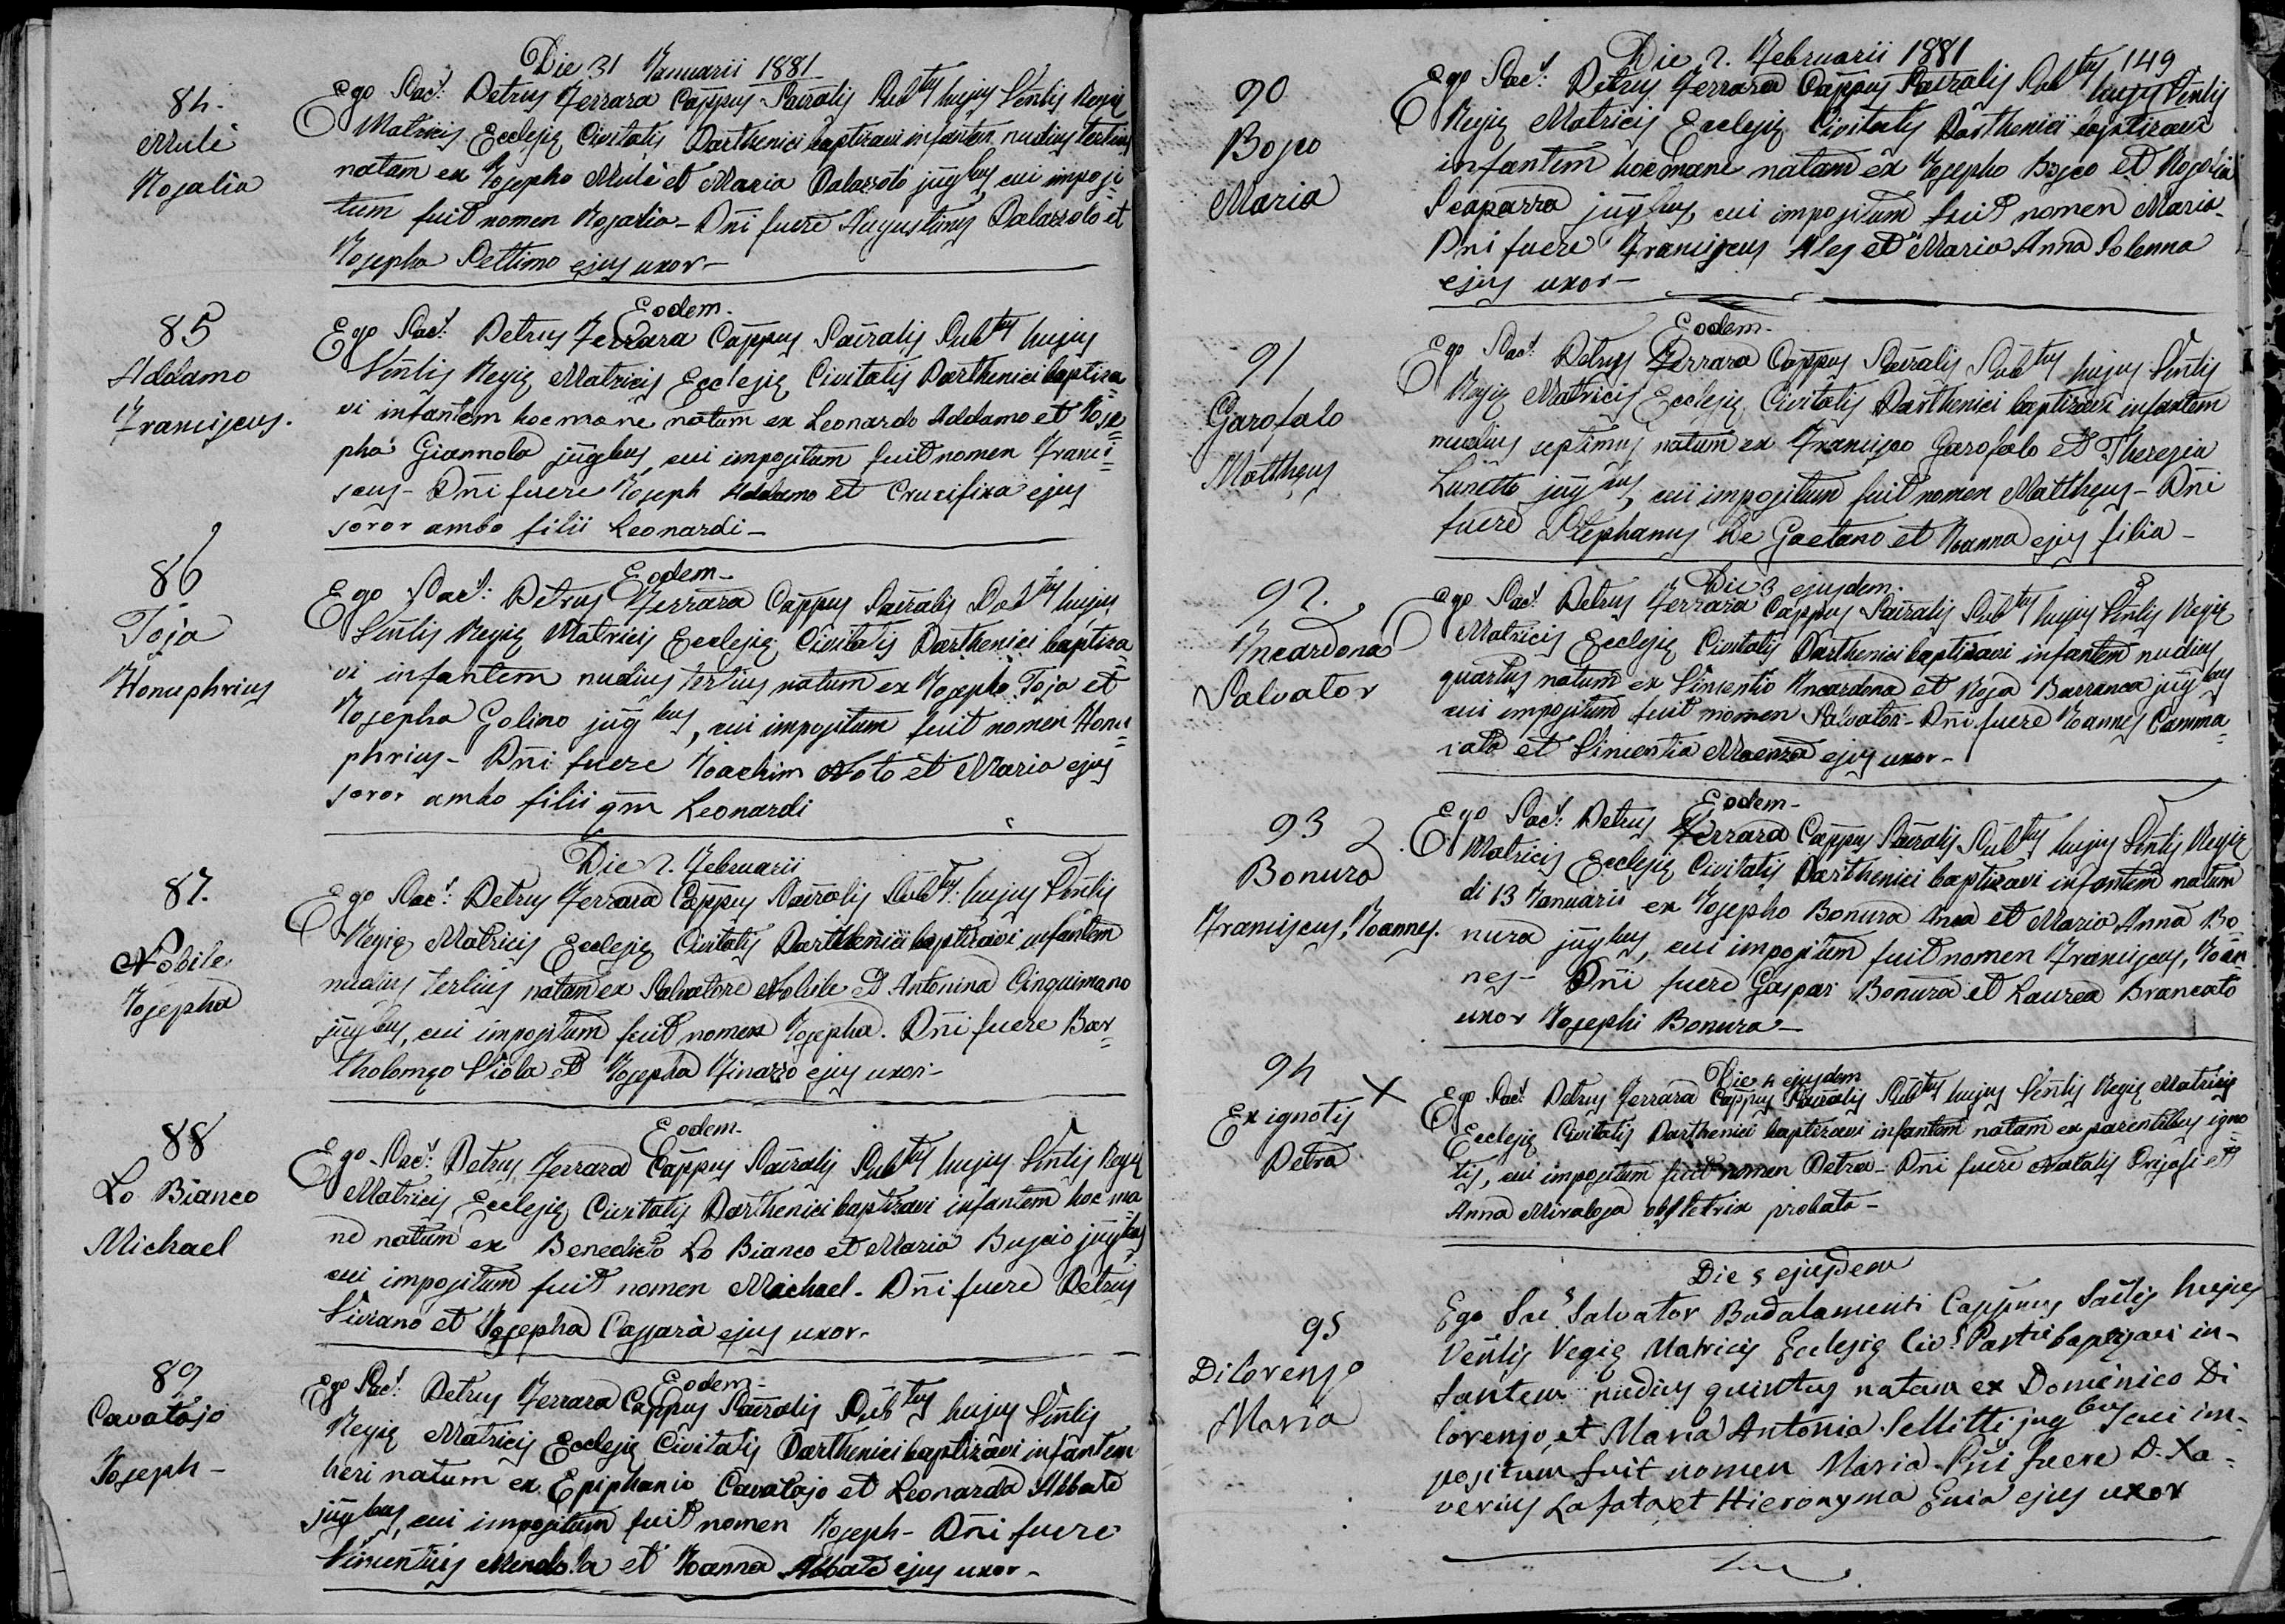 Die 31 Januarii 1881
84.
Mulè
Rosalia
Ego Sac: Petrus Ferrara Cappus Sacralis Subtus hujus Venlis Regię
Matricis Ecclesię Civitatis Parthenici baptizavi infantem nudius tertius
natam ex Josepho Mulè et Maria Palazzolo jugbus cui imposi=
tum fuit nomen Rosalia - Pñi fuere Augustinus Palazzolo et
Josepha Settimo ejus uxor -
Eodem -
85
Addamo
Franciscus.
Ego Sac: Petrus Ferrara Cappus Sacralis Subtus hujus
Venlis Regię Matricis Ecclesię Civitatis Parthenici baptiza=
vi infantem hoc mane natum ex Leonardo Addamo et Jose=
pha Giannola jugbus, cui impositum fuit nomen Franci=
scus - Pñi fuere Joseph Addamo et Crucifixa ejus
soror ambo filii Leonardi -
Eodem -
86
Toja
Honuphrius
Ego Sac: Petrus Ferrara Cappus Sacralis Subtus hujus
Venlis Regię Matricis Ecclesię Civitatis Parthenici baptiza=
vi infantem nudius tertius natum ex Josepho Toja et
Josepha Golino jugbus, cui impositum fuit nomen Honu=
phrius - Pñi fuere Joachim Noto et Maria ejus
soror ambo filii qm Leonardi
Die 2. Februarii
87.
Nobile
Josepha
Ego Sac: Petrus Ferrara Cappus Sacralis Subtus hujus Venlis
Regię Matricis Ecclesię Civitatis Parthenici baptizavi infantem
nudius tertius natam ex Salvatore Nobile et Antonina Cinquimano
jugbus, cui impositum fuit nomen Josepha. Pñi fuere Bar=
tholomęo Viola et Josepha Finazzo ejus uxor -
Eodem -
88
Lo Bianco
Michael
Ego Sac: Petrus Ferrara Cappus Sacralis Subtus hujus Venlis Regię
Matricis Ecclesię Civitatis Parthenici baptizavi infantem hoc ma=
ne natum ex Benedicto Lo Bianco et Maria Buscio jugbus
cui impositum fuit nomen Michael - Pñi fuere Petrus
Vivano et Josepha Cassarà ejus uxor -
Eodem -
89
Cavatajo
Joseph -
Ego Sac: Petrus Ferrara Cappus Sacralis Subtus hujus Venlis
Regię Matricis Ecclesię Civitatis Parthenici baptizavi infantem
heri natum ex Epiphanio Cavatajo et Leonarda Abbate
jugbus, cui impositum fuit nomen Joseph - Pñi fuere
Vincentius Mendola et Joanna Abbate ejus uxor -
Die 2. Februarii 1881
149
90
Bosco
Maria
Ego Sac: Petrus Ferrara Cappus Sacralis Subtus hujus Venlis
Regię Matricis Ecclesię Civitatis Parthenici baptizavi
infantem hoc mane natam ex Josepho Bosco et Rosolia
Scaparra jugbus, cui impositum fuit nomen Maria -
Pñi fuere Franciscus Ales et Maria Anna Polenna
ejus uxor -
Eodem -
91
Garofalo
Matthęus
Ego Sac: Petrus Ferrara Cappus Sacralis Subtus hujus Venlis
Regię Matricis Ecclesię Civitatis Parthenici baptizavi infantem
nudius septimus natum ex Francisco Garofalo et Theresia
Lunetto jugbus, cui impositum fuit nomen Matthęus - Pñi
fuere Stephanus De Gaetano et Joanna ejus filia -
Die 3 ejusdem -
92.
Incardona
Salvator
Ego Sac: Petrus Ferrara Cappus Sacralis Subtus hujus Venlis Regię
Matricis Ecclesię Civitatis Parthenici baptizavi infantem nudius
quartus natum ex Vincentio Incardona et Rosa Barranca jugbus
cui impositum fuit nomen Salvator - Pñi fuere Joannes Camma=
rata et Vincentia Maenza ejus uxor -
Eodem -
93
Bonura
Franciscus, Joannes.
Ego Sac: Petrus Ferrara Cappus Sacralis Subtus hujus Venlis Regię
Matricis Ecclesię Civitatis Parthenici baptizavi infantem natum
di 13 Januarii ex Josepho Bonura et Maria Anna Bo=
nura jugbus, cui impositum fuit nomen Franciscus, Joan=
nes - Pñi fuere Gaspar Bonura et Laurea Brancato
uxor Josephi Bonura -
Die 4 ejusdem
94
Ex ignotis
Petra
Ego Sac: Petrus Ferrara Cappus Sacralis Subtus hujus Venlis Regię Matricis
Ecclesię Civitatis Parthenici baptizavi infantem natam ex parentibus igno=
tis, cui impositum fuit nomen Petra - Pñi fuere Natalis Orisafi et
Anna Mirabga obstetrix probata -
Die 5 ejusdem
95
Di Lorenzo
Maria
Ego Sac. Salvator Badalamenti Cappnus Saclis hujus
Venlis Regię Matricis Ecclesię Civs Parthi baptizavi in-
fantem nudius quintus natam ex Domenico Di
Lorenzo, et Maria Antonia Sellitti jugbus, cui im-
positum fuit nomen Maria. Pñi fuere D. Xa-
verius La fata et Hieronyma Enia ejus uxor